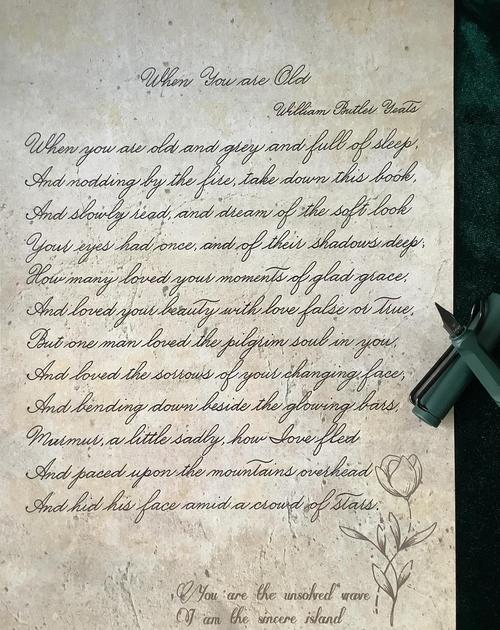 When You are Old
William Butler Yeats
When you are old and grey and full of sleep,
And nodding by the fire, take down this book,
And slowly read, and dream of the soft look
Your eyes had once, and of their shadows deep;
How many loved your moments of glad grace,
And loved your beauty with love false or true,
But one man loved the pilgrim soul in you,
And loved the sorrows of your changing face;
And bending down beside the glowing bars,
Murmur, a little sadly, how Love fled
And paced upon the mountains overhead
And hid his face amid a crowd of stars.
You are the unsolved wave
I am the sincere island